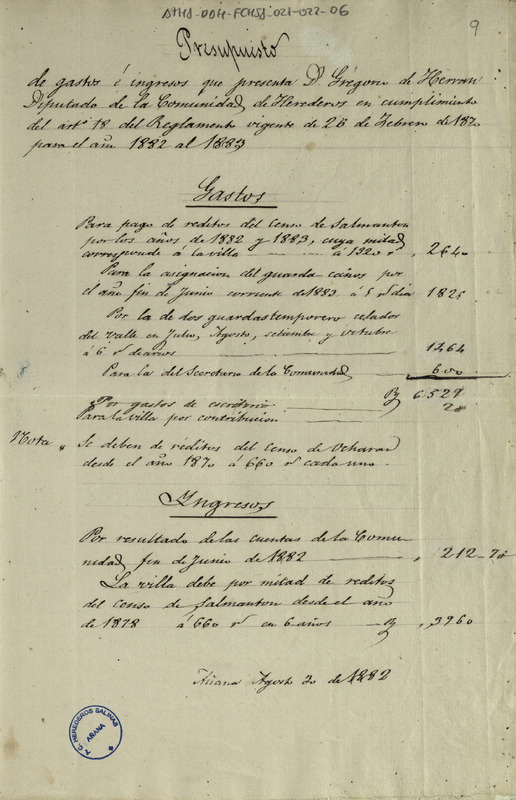 ATHA-DAH-FCHSA-021-022-06
9
Presupuesto
de gastos é ingresos que presenta D. Grégorio de Herran
Diputado de la Comunidad de Herederos en cumplimiento
del artº 18 del Reglamento vigente de 26 de Febrero de 1870
para el año 1882 al 1883
Gastos
Para pago de reditos del censo de Salmanton
por los años de 1882 y 1883, cuya mitad
corresponde á la villa á 1320 r. 2640
Para la asignacion del guarda caños por
el año fin de Junio corriente de 1883 á 5 rs dia 1825
Por la de dos guardas temporeros celadores
del valle en Julio, Agosto, setiembre y octubre
á 6 rs diarios 1464
Para la del Secretario de la Comunidad 600
Por gastos de escritorio 6.529
Para la villa por contribucion
Nota " Se deben de reditos del censo de Ocharan
desde el año 1870 á 660 rs cada uno.
Ingresos
Por resultado de las cuentas de la Comu-
nidad fin de Junio de 1882 212-70
La villa debe por mitad de reditos
del censo de Salmanton desde el año
de 1878 á 660 rs en 6 años 3960
Añana Agosto 30 de 1882
A.C. HEREDEROS SALINAS
AÑANA